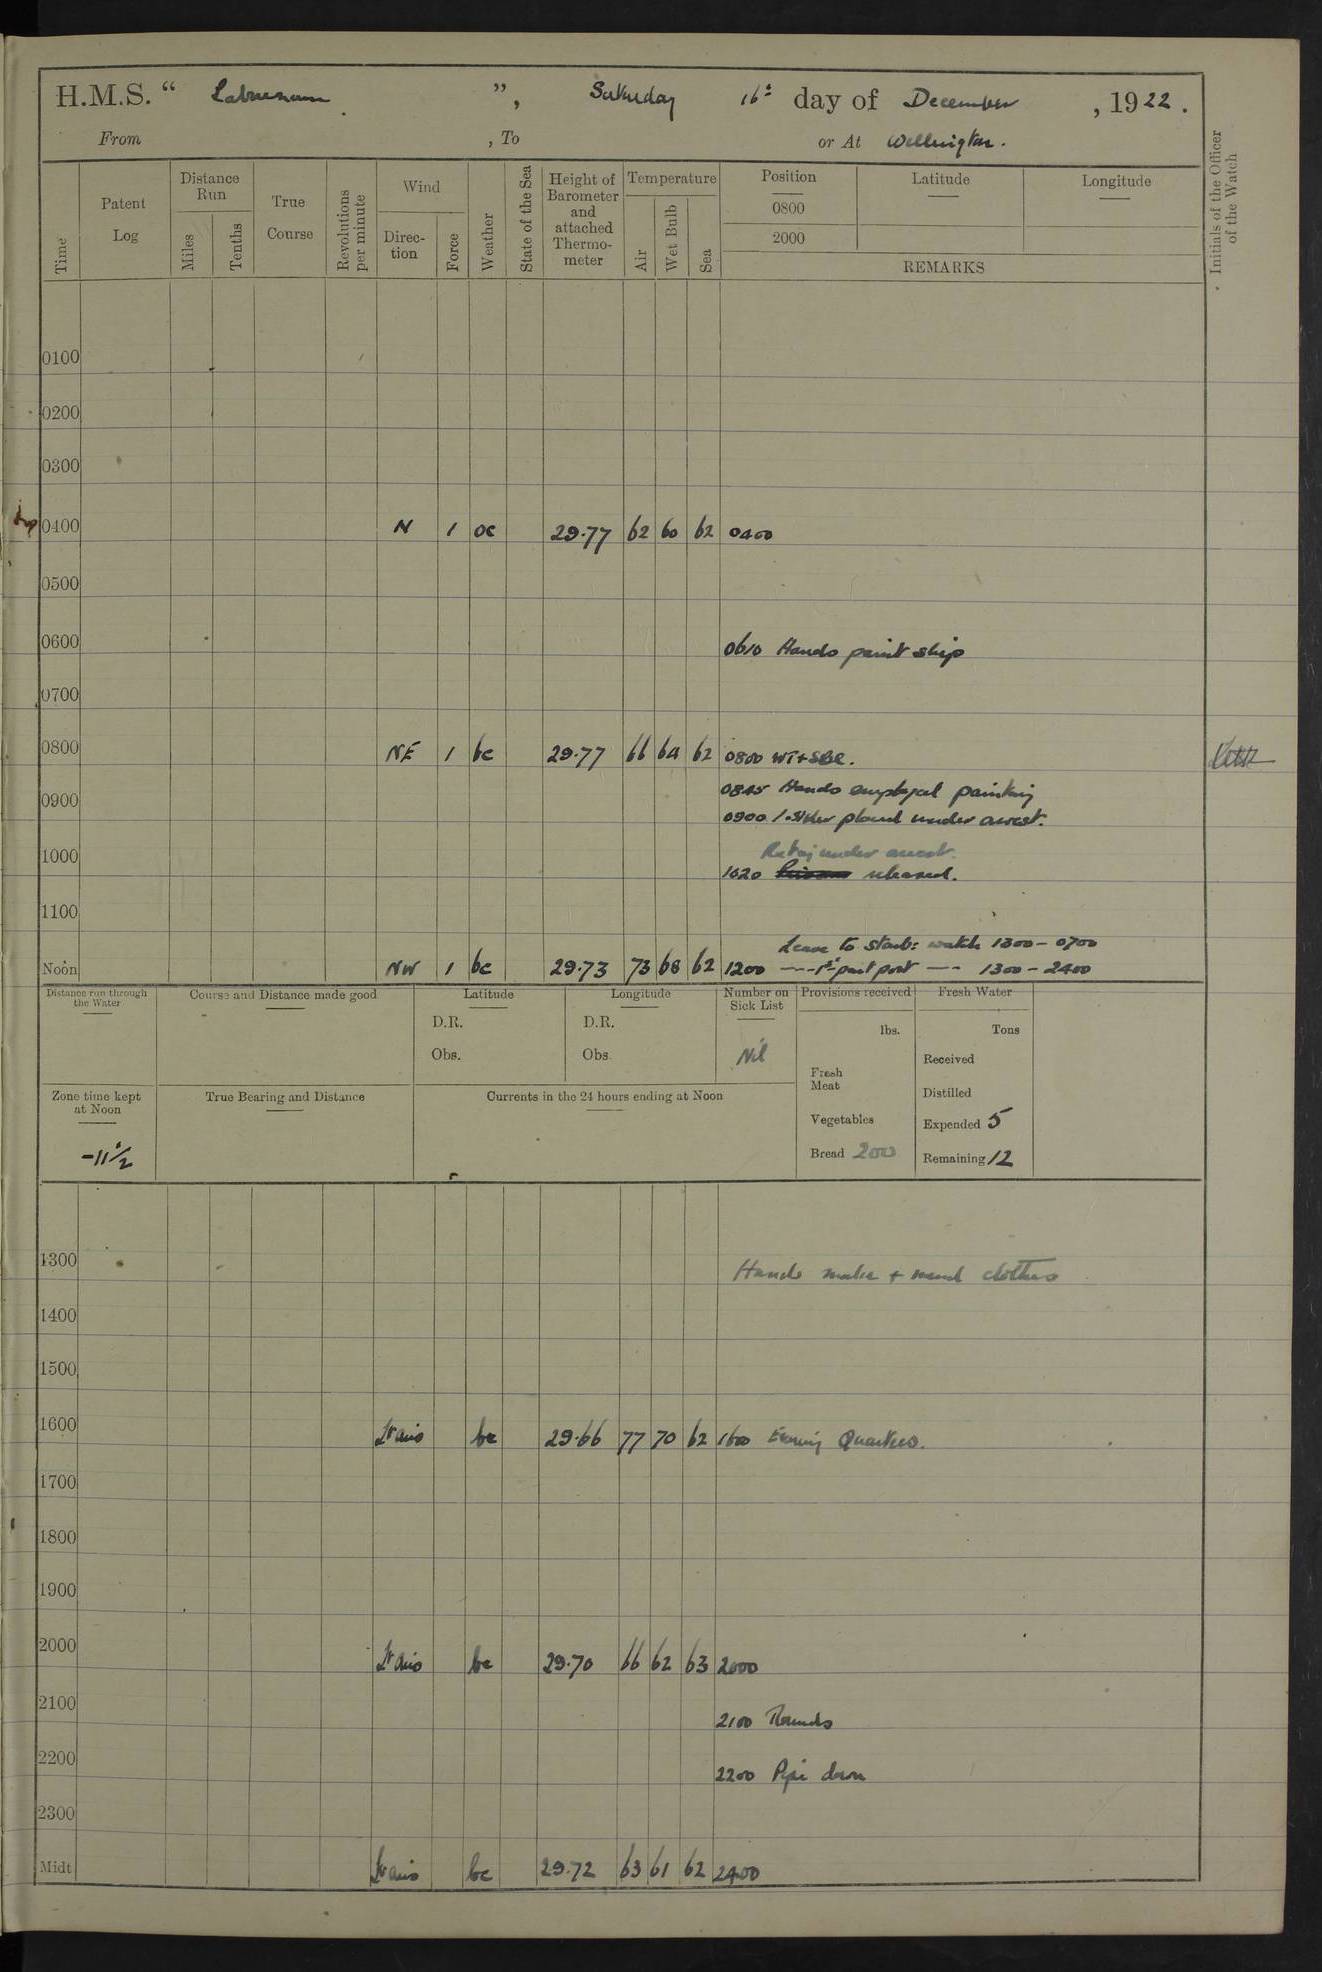 H.M.S. “ Laburnum ”, Saturday 16th day of December, 1922.
From , To or At Wellington.
Time
Patent Log
Distance Run
Miles
Tenths
True Course
Revolutions per minute
Wind
Direc-tion
Force
Weather
State of the Sea
Height of Barometer and attached Thermo-meter
Temperature
Air
Wet Bulb
Sea
Position Latitude Longitude
0800
2000
REMARKS
Initials of the Officer of the Watch
0100
0200
0300
0400 N 1 oc 29.77 62 60 62 0400
0500
0600 0610 Hands paint ship
0700
0800 NE 1 bc 29.77 66 64 62 0800 WT+SBE.
0845 Hands employed painting
0900 0900 placed under arrest.
1000 Rating under arrest.
1020 released.
1100
Leave to starb: watch 1300 - 0700
Noon NW 1 bc 29.73 73 68 62 1200 —— 1st part port —— 1300 - 2400
Distance run through the Water
Course and Distance made good
Latitude
D.R.
Obs.
Longitude
D.R.
Obs.
Number on Sick List
Nil
Provisions received
lbs.
Fresh Meat
Vegetables
Bread 200
Fresh Water
Tons
Received
Distilled
Expended 5
Remaining 12
Zone time kept at Noon
-11½
True Bearing and Distance
Currents in the 24 hours ending at Noon
1300 Hands make + mend clothes
1400
1500
1600 Lt airs bc 29.66 77 70 62 1600 Evening Quarters.
1700
1800
1900
2000 Lt airs bc 29.70 66 62 63 2000
2100 2100 Rounds
2200 2200 Pipe down
2300
Midt Lt airs bc 29.72 63 61 62 2400